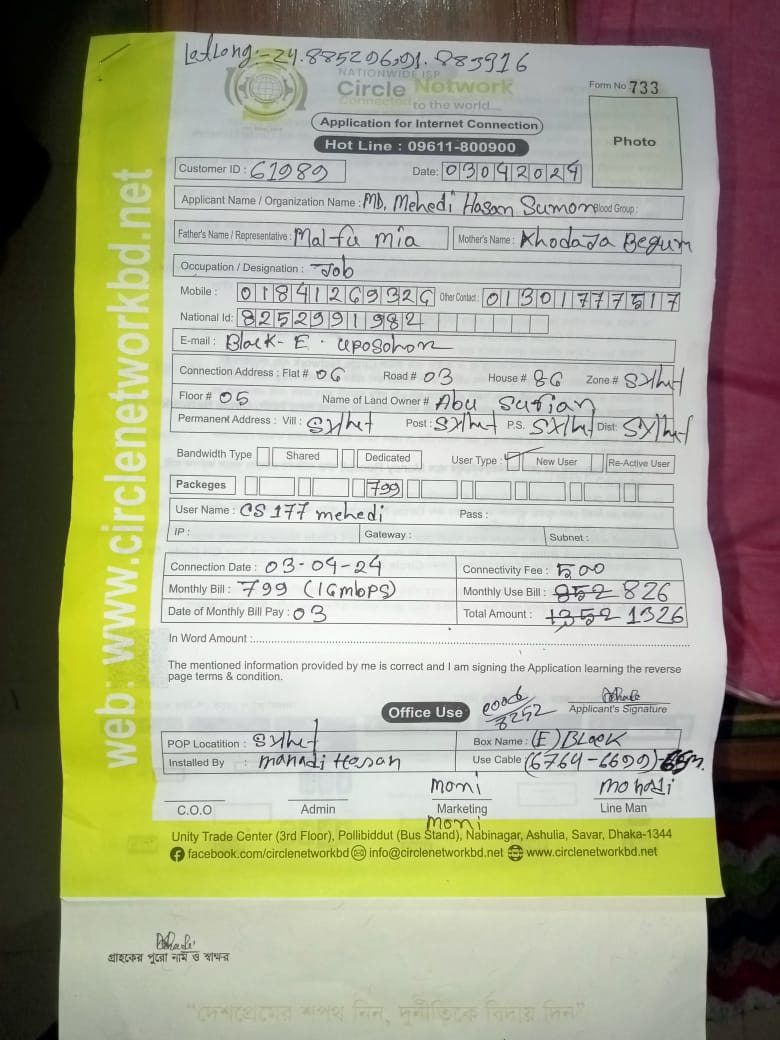 LatLong:- 24.885206,91.883916
NATIONWIDE ISP
Circle Network
Connected to the world....
Form No 733
Application for Internet Connection
Photo
Hot Line : 09611-800900
Customer ID : 61989
Date: 03042024
Applicant Name / Organization Name : MD. Mehedi Hasan Sumon Blood Group :
Father's Name / Representative : Malfu mia Mother's Name : Khodaja Begum
Occupation / Designation : Job
Mobile : 01841269326 Other Contact : 01301777517
National Id: 8252991982
E-mail : Block- E . uposohor
Connection Address : Flat # 06 Road # 03 House # 86 Zone # Sylhet
Floor # 05 Name of Land Owner # Abu Sufian
Permanent Address : Vill : Sylhet Post : Sylhet P.S. Sylhet Dist: Sylhet
Bandwidth Type Shared Dedicated User Type : New User Re-Active User
Packeges 799
User Name : CS177 mehedi Pass :
IP : Gateway : Subnet :
Connection Date : 03-04-24 Connectivity Fee : 500
Monthly Bill : 799 (16mbps) Monthly Use Bill : 852 826
Date of Monthly Bill Pay : 03 Total Amount : 1352 1326
In Word Amount :
The mentioned information provided by me is correct and I am signing the Application learning the reverse
page terms & condition.
Office Use
Applicant's Signature
POP Locatition : Sylhet Box Name : (E) BLock
Installed By : manadi Hasan Use Cable (6764-6699)-65m.
moni mohadi
C.O.O Admin Marketing Line Man
moni
Unity Trade Center (3rd Floor), Pollibiddut (Bus Stand), Nabinagar, Ashulia, Savar, Dhaka-1344
facebook.com/circlenetworkbd info@circlenetworkbd.net www.circlenetworkbd.net
web: www.circlenetworkbd.net
গ্রাহকের পুরো নাম ও স্বাক্ষর
“দেশপ্রেমের শপথ নিন, দুর্নীতিকে বিদায় দিন”